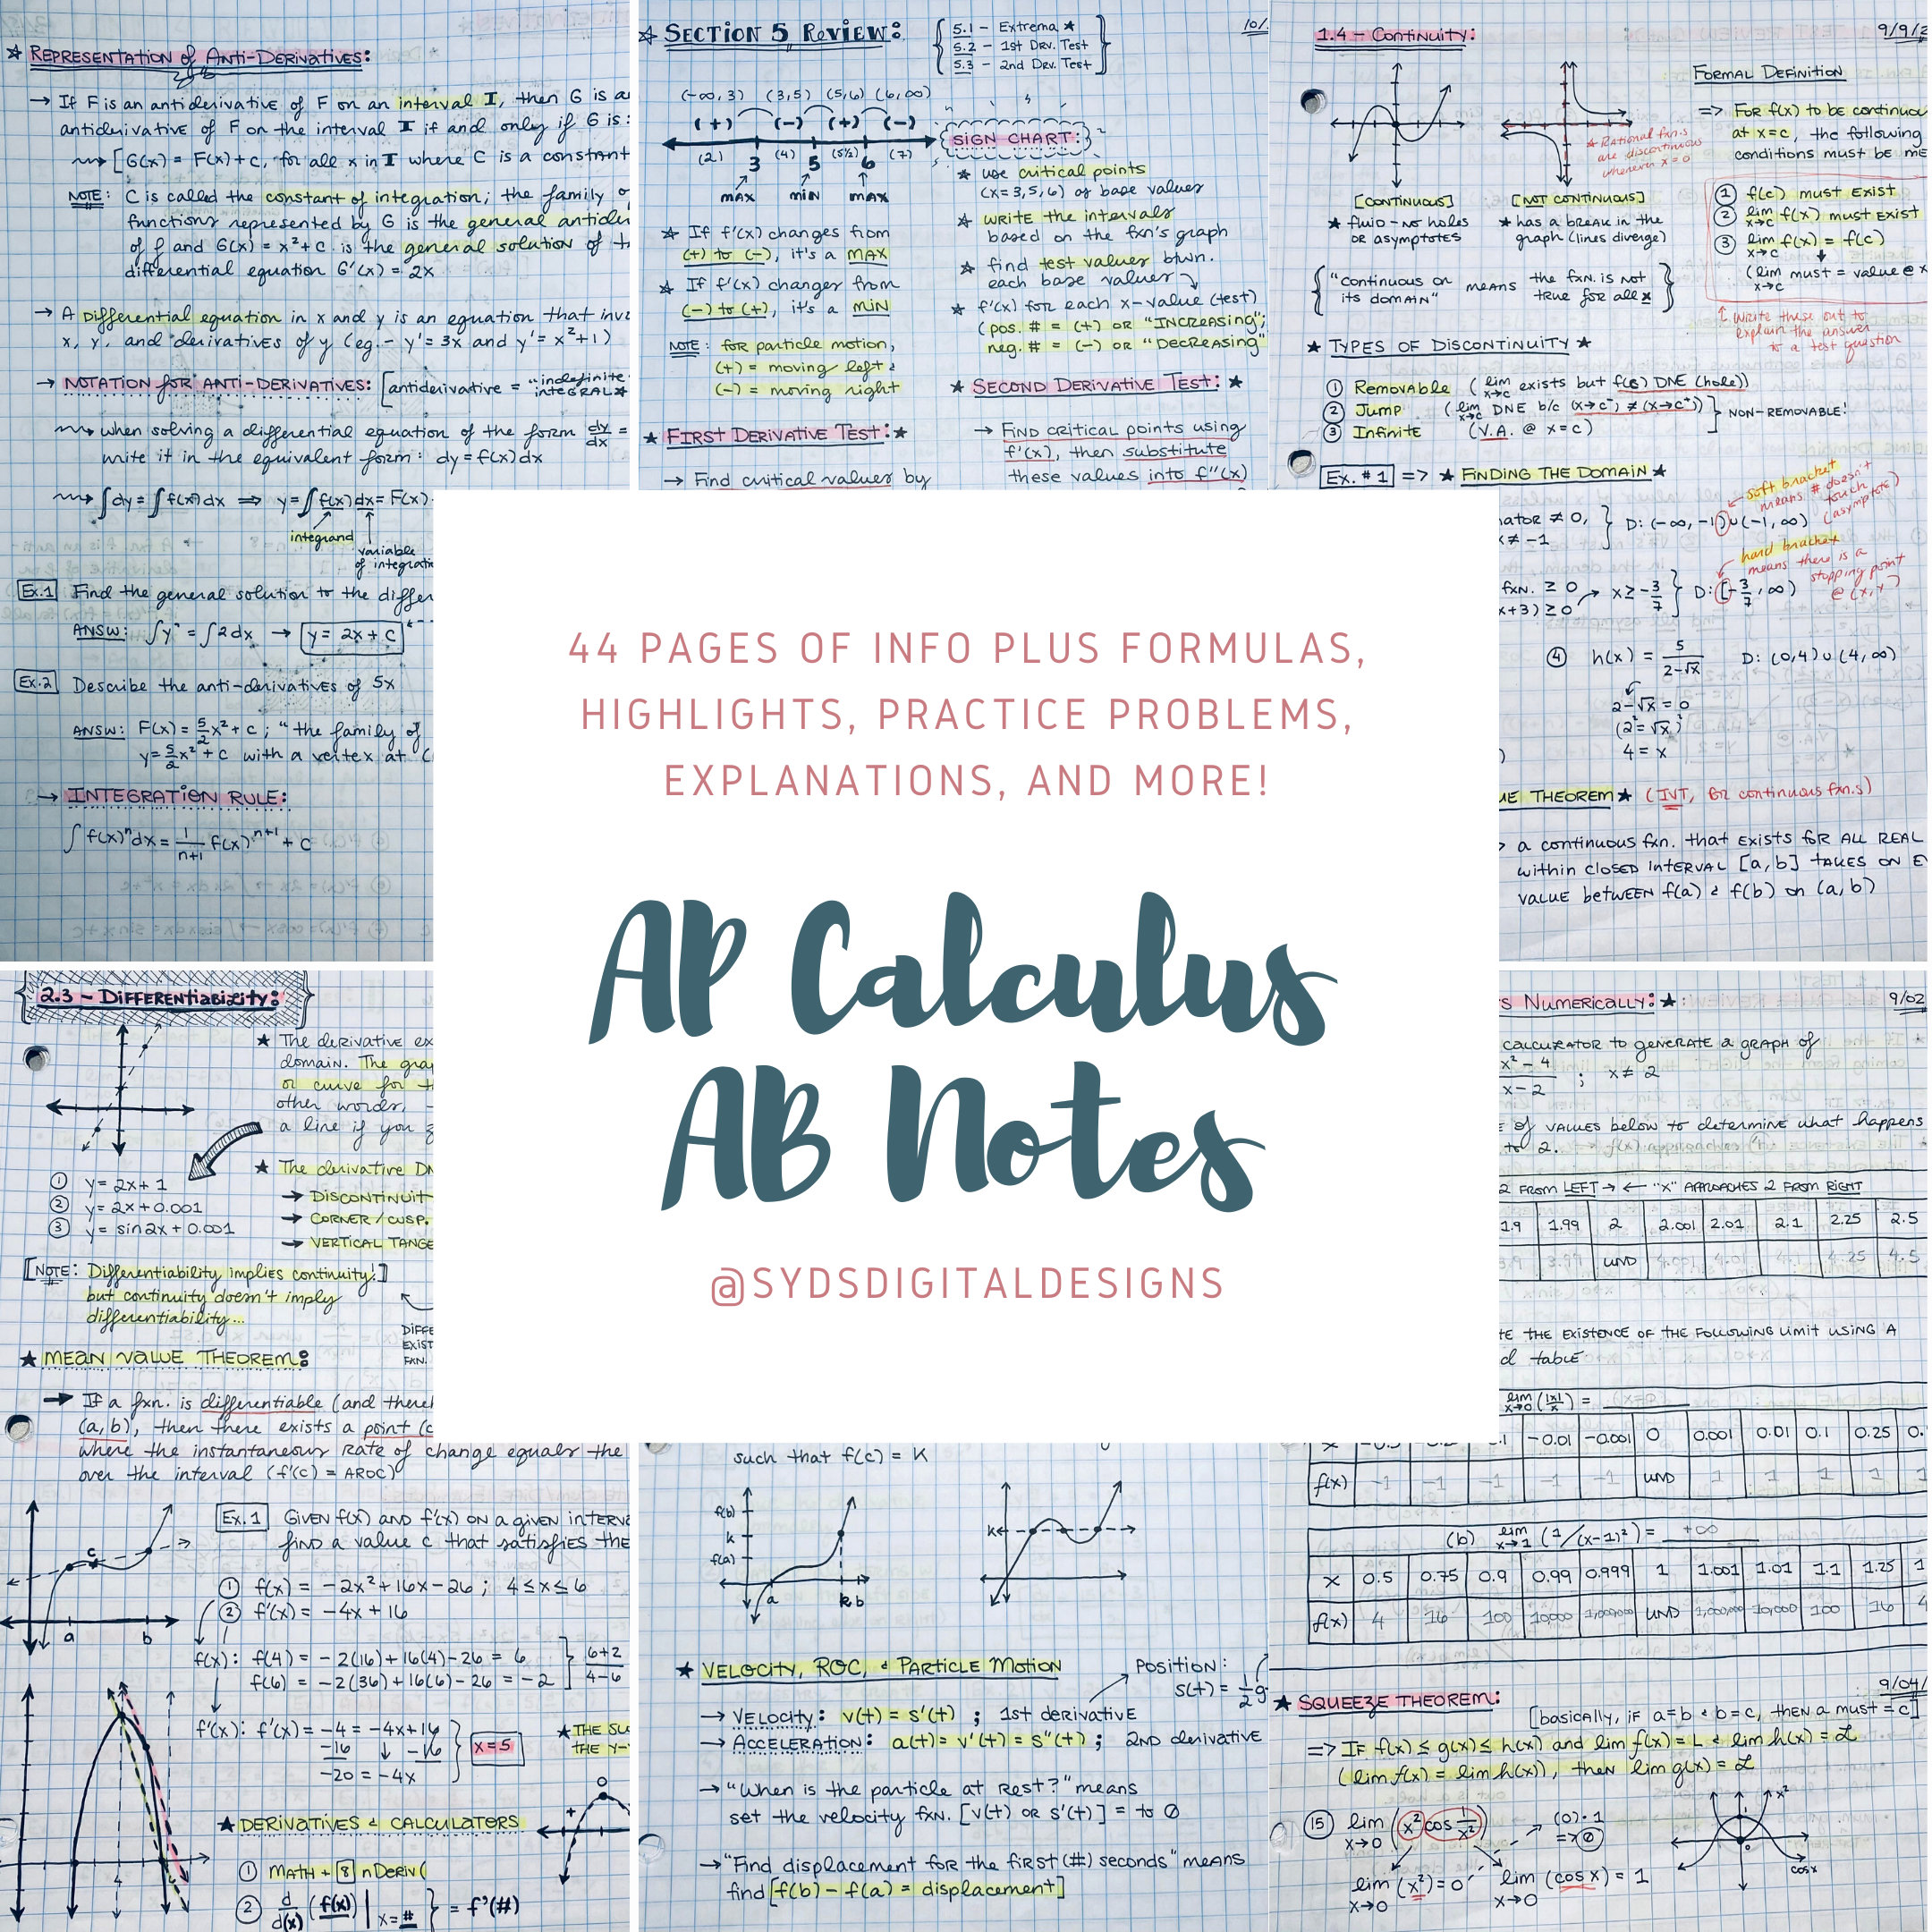 ☆ REPRESENTATION of Anti-DERIVATIVES:
→ If F is an antiderivative of F on an interval I, then G is a
antiderivative of F on the interval I if and only if G is:
[G(x) = F(x)+c, for all x in I where C is a constant
NOTE: C is called the constant of integration; the family
functions represented by G is the general antideri
of f and G(x) = x²+c is the general solution of
differential equation G'(x) = 2x
→ A differential equation in x and y is an equation that inv
x, y, and derivatives of y (eg.- y'= 3x and y'= x²+1)
→ NOTATION for ANTI-DERIVATIVES: [antiderivative = "indefinite
INTEGRAL★
when solving a differential equation of the form dy/dx =
write it in the equivalent form: dy=f(x)dx
∫dy = ∫f(x)dx ⇒ y=∫f(x)dx= F(x)
integrand
variable
of integrati
Ex.1 Find the general solution to the differ
ANSW: ∫y' = ∫2dx → y = 2x+c
Ex.2 Describe the anti-derivatives of 5x
ANSW: F(x) = 5/2 x² + c ; "the family of
y= 5/2 x² + c with a vertex at
→ INTEGRATION RULE:
∫f(x)ⁿdx = 1/n+1 f(x)ⁿ⁺¹ + c
☆ SECTION 5 REVIEW:
5.1 - Extrema ★
5.2 - 1st Drv. Test
5.3 - 2nd Drv. Test
10/
(-∞, 3) (3,5) (5,6) (6,∞)
(+) (-) (+) (-)
(2) 3 (4) 5 (5½) 6 (7)
max min max
SIGN CHART:
★ use critical points
(x=3,5,6) as base values
★ WRITE the intervals
based on the fxn's graph
★ find test values btwn.
each base value
★ f'(x) for each x-value (test)
(pos. # = (+) OR "INCREASING";
neg. # = (-) OR "DECREASING"
☆ If f'(x) changes from
(+) to (-), it's a MAX
☆ If f'(x) changes from
(-) to (+), it's a MIN
NOTE: for particle motion,
(+) = moving left &
(-) = moving right
★ SECOND DERIVATIVE TEST: ★
→ FIND critical points using
f'(x), then substitute
these values into f''(x)
★ FIRST DERIVATIVE TEST: ★
→ Find critical values by
1.4 - Continuity:
9/9/2
[CONTINUOUS]
★ fluid - no holes
OR asymptotes
[NOT CONTINUOUS]
★ has a break in the
graph (lines diverge)
★ Rational fxn.s
are discontinuous
whenever x = 0
FORMAL DEFINITION
=> FOR f(x) to be continuou
at x=c, the following
conditions must be me
① f(c) must Exist
② lim x→c f(x) must Exist
③ lim x→c f(x) = f(c)
(lim x→c must = value @ x
↑ write these out to
explain the answer
to a test question
{"continuous on its domain" means the fxn. is not true for all x}
★ TYPES OF DISCONTINUITY ★
① Removable (lim x→c exists but f(c) DNE (hole))
② Jump (lim x→c DNE b/c (x→c⁻) ≠ (x→c⁺))
③ Infinite (V.A. @ x=c)
NON-REMOVABLE!
Ex. #1 => ★ FINDING THE DOMAIN ★
soft bracket
means # doesn't
touch
(asymptote)
ator ≠ 0,
x ≠ -1
D: (-∞, -1)∪(-1, ∞)
hard bracket
means there is a
stopping point
@ (x,y)
fxn. ≥ 0
x+3) ≥ 0
x ≥ -3/7
D: [-3/7, ∞)
④ h(x) = 5/2-√x D: (0,4)∪(4,∞)
2-√x = 0
(2 = √x)²
4 = x
UE THEOREM ★ (IVT, for continuous fxn.s)
a continuous fxn. that EXISTS for ALL REAL
within closed INTERVAL [a,b] TAKES ON E
VALUE between f(a) & f(b) on (a,b)
44 PAGES OF INFO PLUS FORMULAS,
HIGHLIGHTS, PRACTICE PROBLEMS,
EXPLANATIONS, AND MORE!
AP Calculus
AB Notes
@SYDSDIGITALDESIGNS
2.3 - DIFFERENTIABILITY:
★ The derivative ex
domain. The grap
or curve for
other words,
a line if you
★ The derivative DN
→ DISCONTINUIT
→ CORNER/CUSP.
→ VERTICAL TANGE
① y= 2x+1
② y= 2x+0.001
③ y= sin2x+0.001
[NOTE: Differentiability implies continuity!]
but continuity doesn't imply
differentiability...
DIFFE
EXIST
FXN.
★ MEAN VALUE THEOREM:
→ If a fxn. is differentiable (and there
(a,b), then there exists a point (c
where the instantaneous RATE of change equals the
over the interval (f'(c) = AROC)
c
a b
Ex.1 GIVEN f(x) AND f'(x) ON a given INTERV
find a value c that satisfies the
① f(x) = -2x²+16x-26 ; 4≤x≤6
② f'(x) = -4x+16
f(x): f(4) = -2(16)+16(4)-26 = 6
f(6) = -2(36)+16(6)-26 = -2
6+2/4-6
f'(x): f'(x) = -4 = -4x+16
-16 -16
-20 = -4x
x=5
★ THE SL
THE Y-
★ DERIVATIVES & CALCULATORS
① MATH + 8 nDeriv(
② d/d(x) (f(x)) | x=# = f'(#)
such that f(c) = K
f(b)
k
f(a)
a k b
K
★ VELOCITY, ROC, & PARTICLE MOTION
POSITION:
s(t) = 1/2 g
→ VELOCITY: v(t) = s'(t) ; 1st derivative
→ ACCELERATION: a(t) = v'(t) = s''(t) ; 2ND derivative
→ "When is the particle at REST?" means
set the velocity fxn. [v(t) OR s'(t)] = to 0
→ "Find displacement for the first (#) seconds" means
find [f(b) - f(a) = displacement]
S NUMERICALLY: ★
9/02
CALCULATOR to generate a GRAPH of
x²-4/x-2 ; x ≠ 2
of VALUES below to determine what happens
to 2.
2 FROM LEFT → ← "X" APPROACHES 2 FROM RIGHT
1.9 1.99 2 2.001 2.01 2.1 2.25 2.5
3.9 3.99 UND 4.001 4.01 4.1 4.25 4.5
TE THE EXISTENCE OF THE FOLLOWING LIMIT USING A
d table
lim x→0 (|x|/x) =
-0.01 -0.001 0 0.001 0.01 0.1 0.25
f(x) -1 -1 -1 -1 -1 UND 1 1 1 1
(b) lim x→1 (1/(x-1)²) = +∞
x 0.5 0.75 0.9 0.99 0.999 1 1.001 1.01 1.1 1.25
f(x) 4 16 100 10,000 1,000,000 UND 1,000,000 10,000 100 16 4
9/04/
★ SQUEEZE THEOREM:
[basically, IF a=b & b=c, THEN a must = c]
=> IF f(x) ≤ g(x) ≤ h(x) and lim f(x) = L & lim h(x) = L
(lim f(x) = lim h(x)), then lim g(x) = L
⑮ lim x→0 (x² cos 1/x²)
(0)·1
=> 0
lim x→0 (x²) = 0
lim x→0 (cos x) = 1
x²
cos x